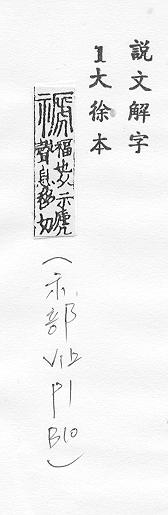 説文解字
1大徐本
禠
福也从示虒
聲息移切
(示部 P1 B10)